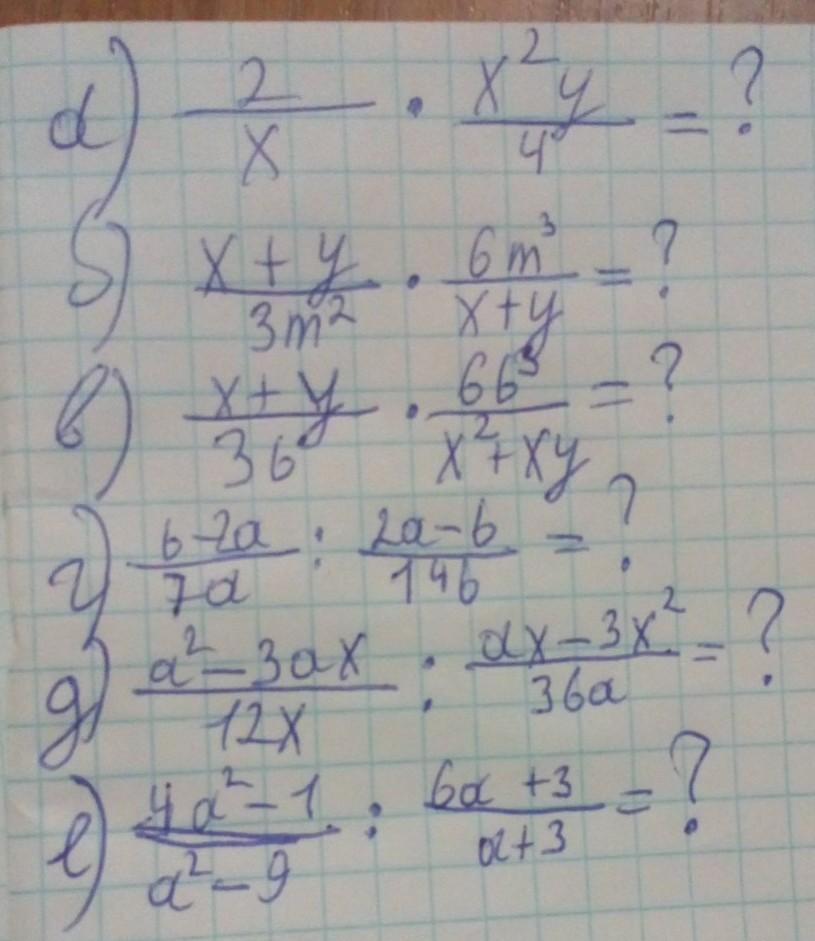 а) 2/x · x²y/4 = ?
б) x+y/3m² · 6m³/x+y = ?
в) x+y/3b · 6b³/x²+xy = ?
г) b-2a/7a : 2a-b/14b = ?
д) a²-3ax/12x : ax-3x²/36a = ?
е) 4a²-1/a²-9 : 6a+3/a+3 = ?